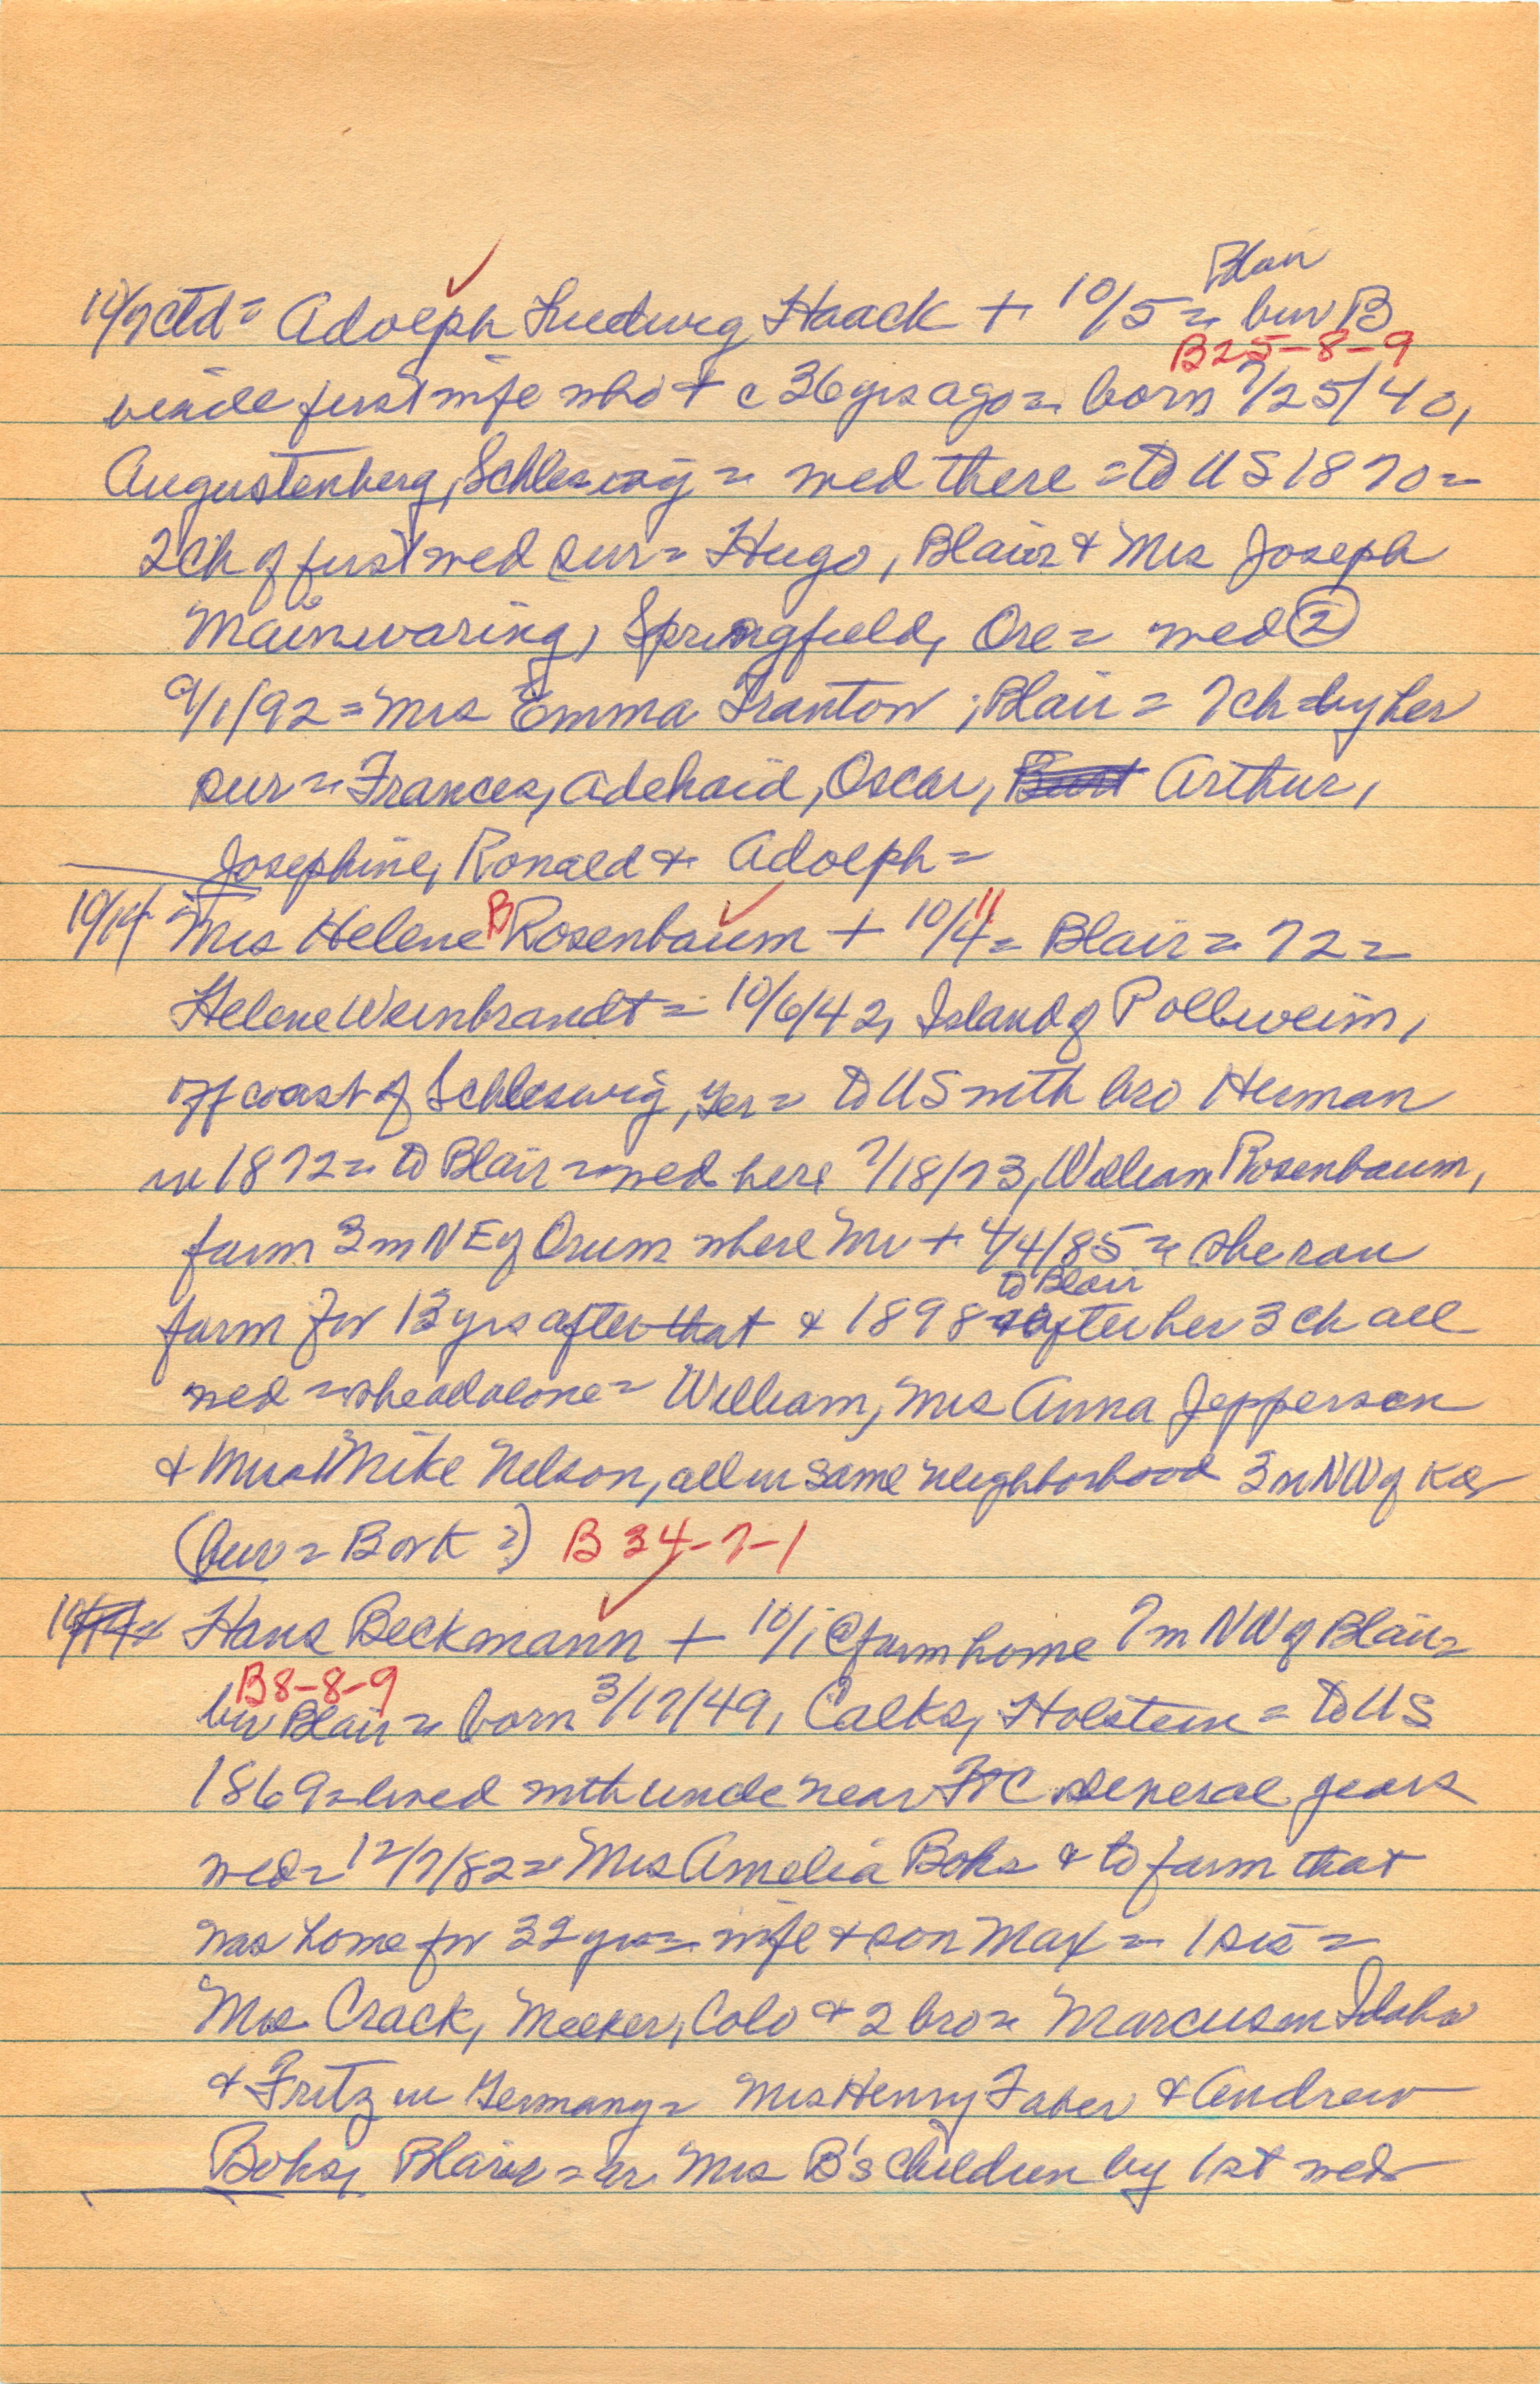 Blair
10/7 ctd = Adolph Ludwig Haack + 10/5 = bur B
B25-8-9
beside first wife who + c 36 yrs ago = born 7/25/40,
Augustenberg, Schleswig = wed there = to US 1870 =
2 ch of first wed sur = Hugo, Blair & Mrs Joseph
Mainwaring, Springfield, Ore = wed ②
9/1/92 = Mrs Emma Trantow, Blair = 7 ch = by her
sur = Frances, Adehaid, Oscar, Arthur,
Josephine, Ronald & Adolph =
10/14 Mrs Helene B Rosenbaum + 10/11 = Blair = 72 =
Helene Weinbrandt = 10/6/42, Island of Pollweim,
off coast of Schleswig, Ger = to US with bro Herman
in 1872 = to Blair = wed here 7/18/73, William Rosenbaum,
farm 3 m NE of Orum where Mr + 4/4/85 = she ran
to Blair
farm for 13 yrs after that & 1898 after her 3 ch all
wed = alone = William, Mrs Anna Jeppersen
& Mrs Mike Nelson, all in same neighborhood 3 m NW of
(bur = Bork?) B 34-7-1
Hans Beckmann + 10/1 @ farm home 7 m NW of Blair =
B8-8-9
bur Blair = born 3/17/49, Calks, Holstein = to US
1869 = lived with uncle near FtC several years
wed = 12/7/82 = Mrs Amelia Bohs & to farm that
was home for 32 yrs = wife & son Max = 1 sis =
Mrs Crack, Meeker, Colo & 2 bro = Marcus in Idaho
& Fritz in Germany = Mrs Henry Faber & Andrew
Bohs, Blair = ar Mrs B's children by 1st wed